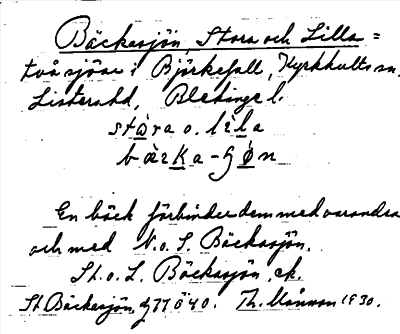 Bäckasjön, Stora och Lilla =
två sjöar i Björkefall, Kyrkhults sn,
Listers hd, Blekinge l.
stòra o. lìla
bàrka-ʃøn
En bäck förbinder dem med varandra
och med N. o. S. Bäckasjön.
St. o. L. Bäckasjön, ek.
St Bäckasjön, GTT Ö 40. Th. Månsson 1930.